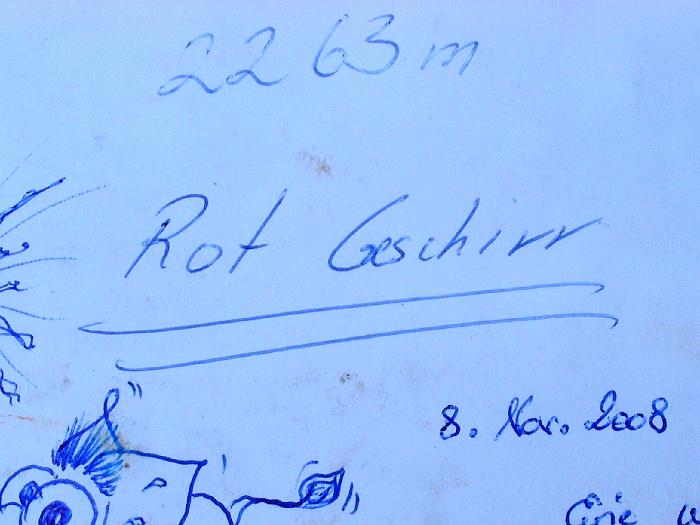 2263 m
Rot Geschirr
8. Nov. 2008